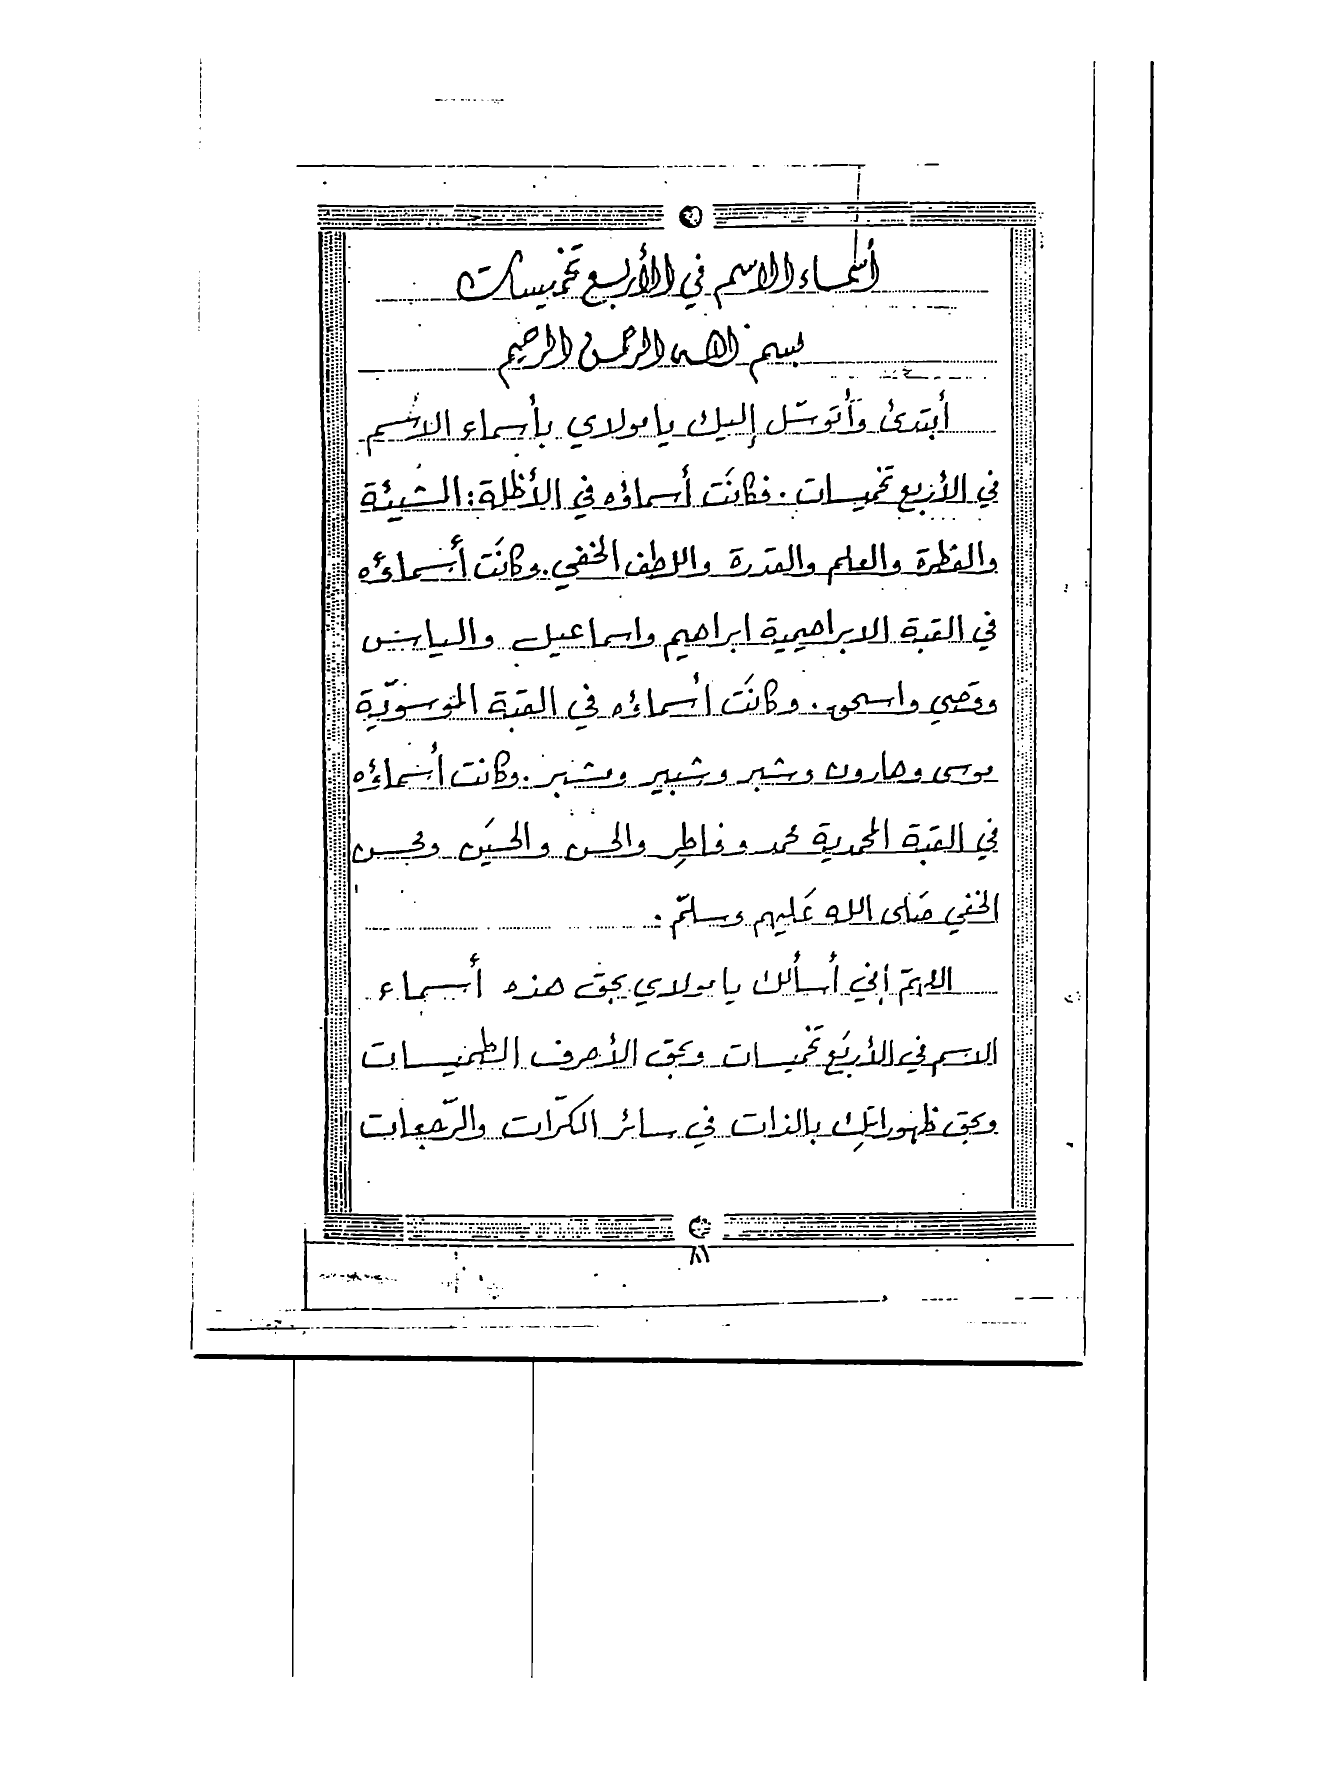 أسماء الاسم في الأربع تخميسات
بسم الله الرحمن الرحيم
أبتدئ وَأتوسّل إليك يا مولاي بأسماء الاسم
في الأربع تخميسات. فكانَت أسماؤه في الأظلة: المشيئة
والفطرة والعلم والقدرة واللطف الخفي. وكانَت أسمائه
في القبة الابراهيمية ابراهيم واسماعيل والياس
وقصي واسحق. وكانَت أسماؤه في القبة الموسوّية
موسى وهارون وشبر وشبير ومشبر. وكانت أسماؤه
في القبة المحمدية محمد وفاطِر والحسن والحسَين ومحسن
الخفي صَلى الله عَليهم وسلّم.
اللهمّ إني أسألك يا مولاي بحق هذه أسماء
الاسم في الأربَع تخَميسات وبحق الأحرف الطميسات
وبحق ظهوراتكِ بالذات في سائر الكرّات والرّجعات
٨١